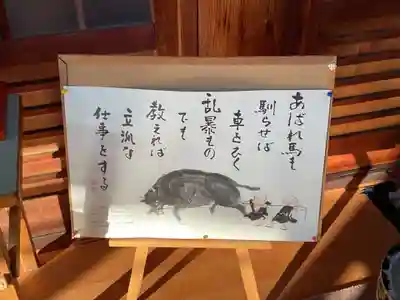 あばれ馬も
馴らせば
車をひく
乱暴もの
でも
教えれば
立派な
仕事をする